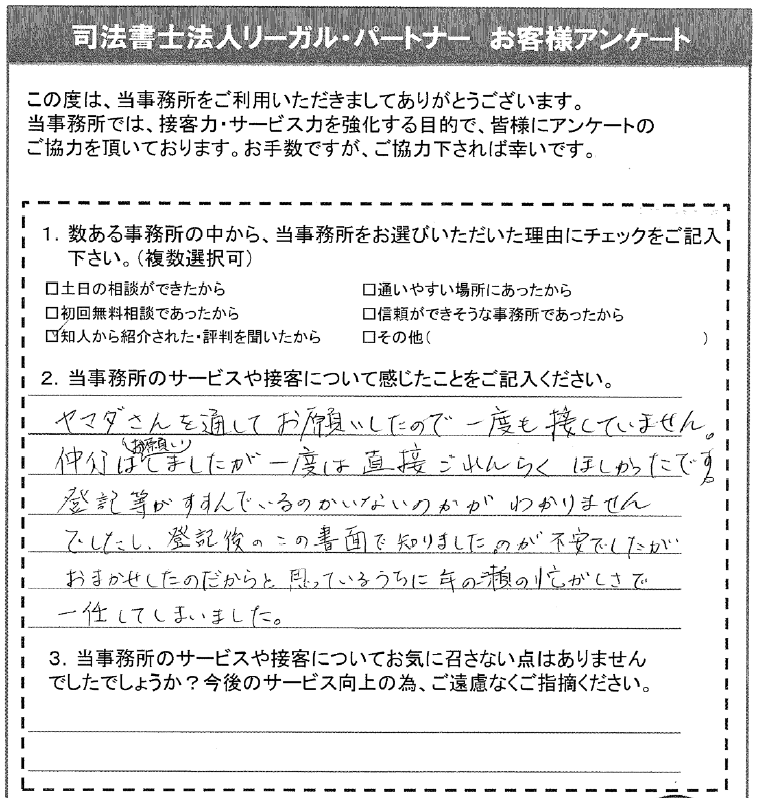 司法書士法人リーガル・パートナー お客様アンケート
この度は、当事務所をご利用いただきましてありがとうございます。
当事務所では、接客力・サービス力を強化する目的で、皆様にアンケートの
ご協力を頂いております。お手数ですが、ご協力下されば幸いです。
1. 数ある事務所の中から、当事務所をお選びいただいた理由にチェックをご記入
下さい。(複数選択可)
□土日の相談ができたから □通いやすい場所にあったから
□初回無料相談であったから □信頼ができそうな事務所であったから
☑知人から紹介された・評判を聞いたから □その他( )
2. 当事務所のサービスや接客について感じたことをご記入ください。
ヤマダさんを通してお願いしたので一度も接していません。
お願い
仲介はしてましたが一度は直接ごれんらくほしかったです。
登記等がすすんでいるのかいないのかがわかりません
でしたし、登記後のこの書面で知りましたのが不安でしたが
おまかせしたのだからと思っているうちに年の瀬の忙がしさで
一任してしまいました。
3. 当事務所のサービスや接客についてお気に召さない点はありません
でしたでしょうか?今後のサービス向上の為、ご遠慮なくご指摘ください。